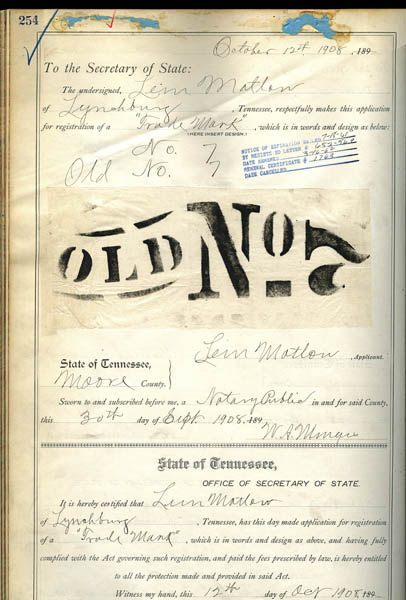 254
October 12th 1908, 189
To the Secretary of State:
The undersigned, Lem Motlow
of Lynchburg, Tennessee, respectfully makes this application
for registration of a "Trade Mark", which is in words and design as below:
(HERE INSERT DESIGN.)
No. 7
Old No. 7
NOTICE OF EXPIRATION MAILED
BY REGISTERED LETTER #
DATE RENEWED
RENEWAL CERTIFICATE #
DATE CANCELLED
OLD No. 7
Lem Motlow, Applicant.
State of Tennessee,
Moore County.
Sworn to and subscribed before me, a Notary Public in and for said County,
this 30th day of Sept. 1908, 189
W. A.
State of Tennessee,
OFFICE OF SECRETARY OF STATE.
It is hereby certified that Lem Motlow
of Lynchburg, Tennessee, has this day made application for registration
of a "Trade Mark", which is in words and design as above, and having fully
complied with the Act governing such registration, and paid the fees prescribed by law, is hereby entitled
to all the protection made and provided in said Act.
Witness my hand, this 12th day of Oct 1908, 189